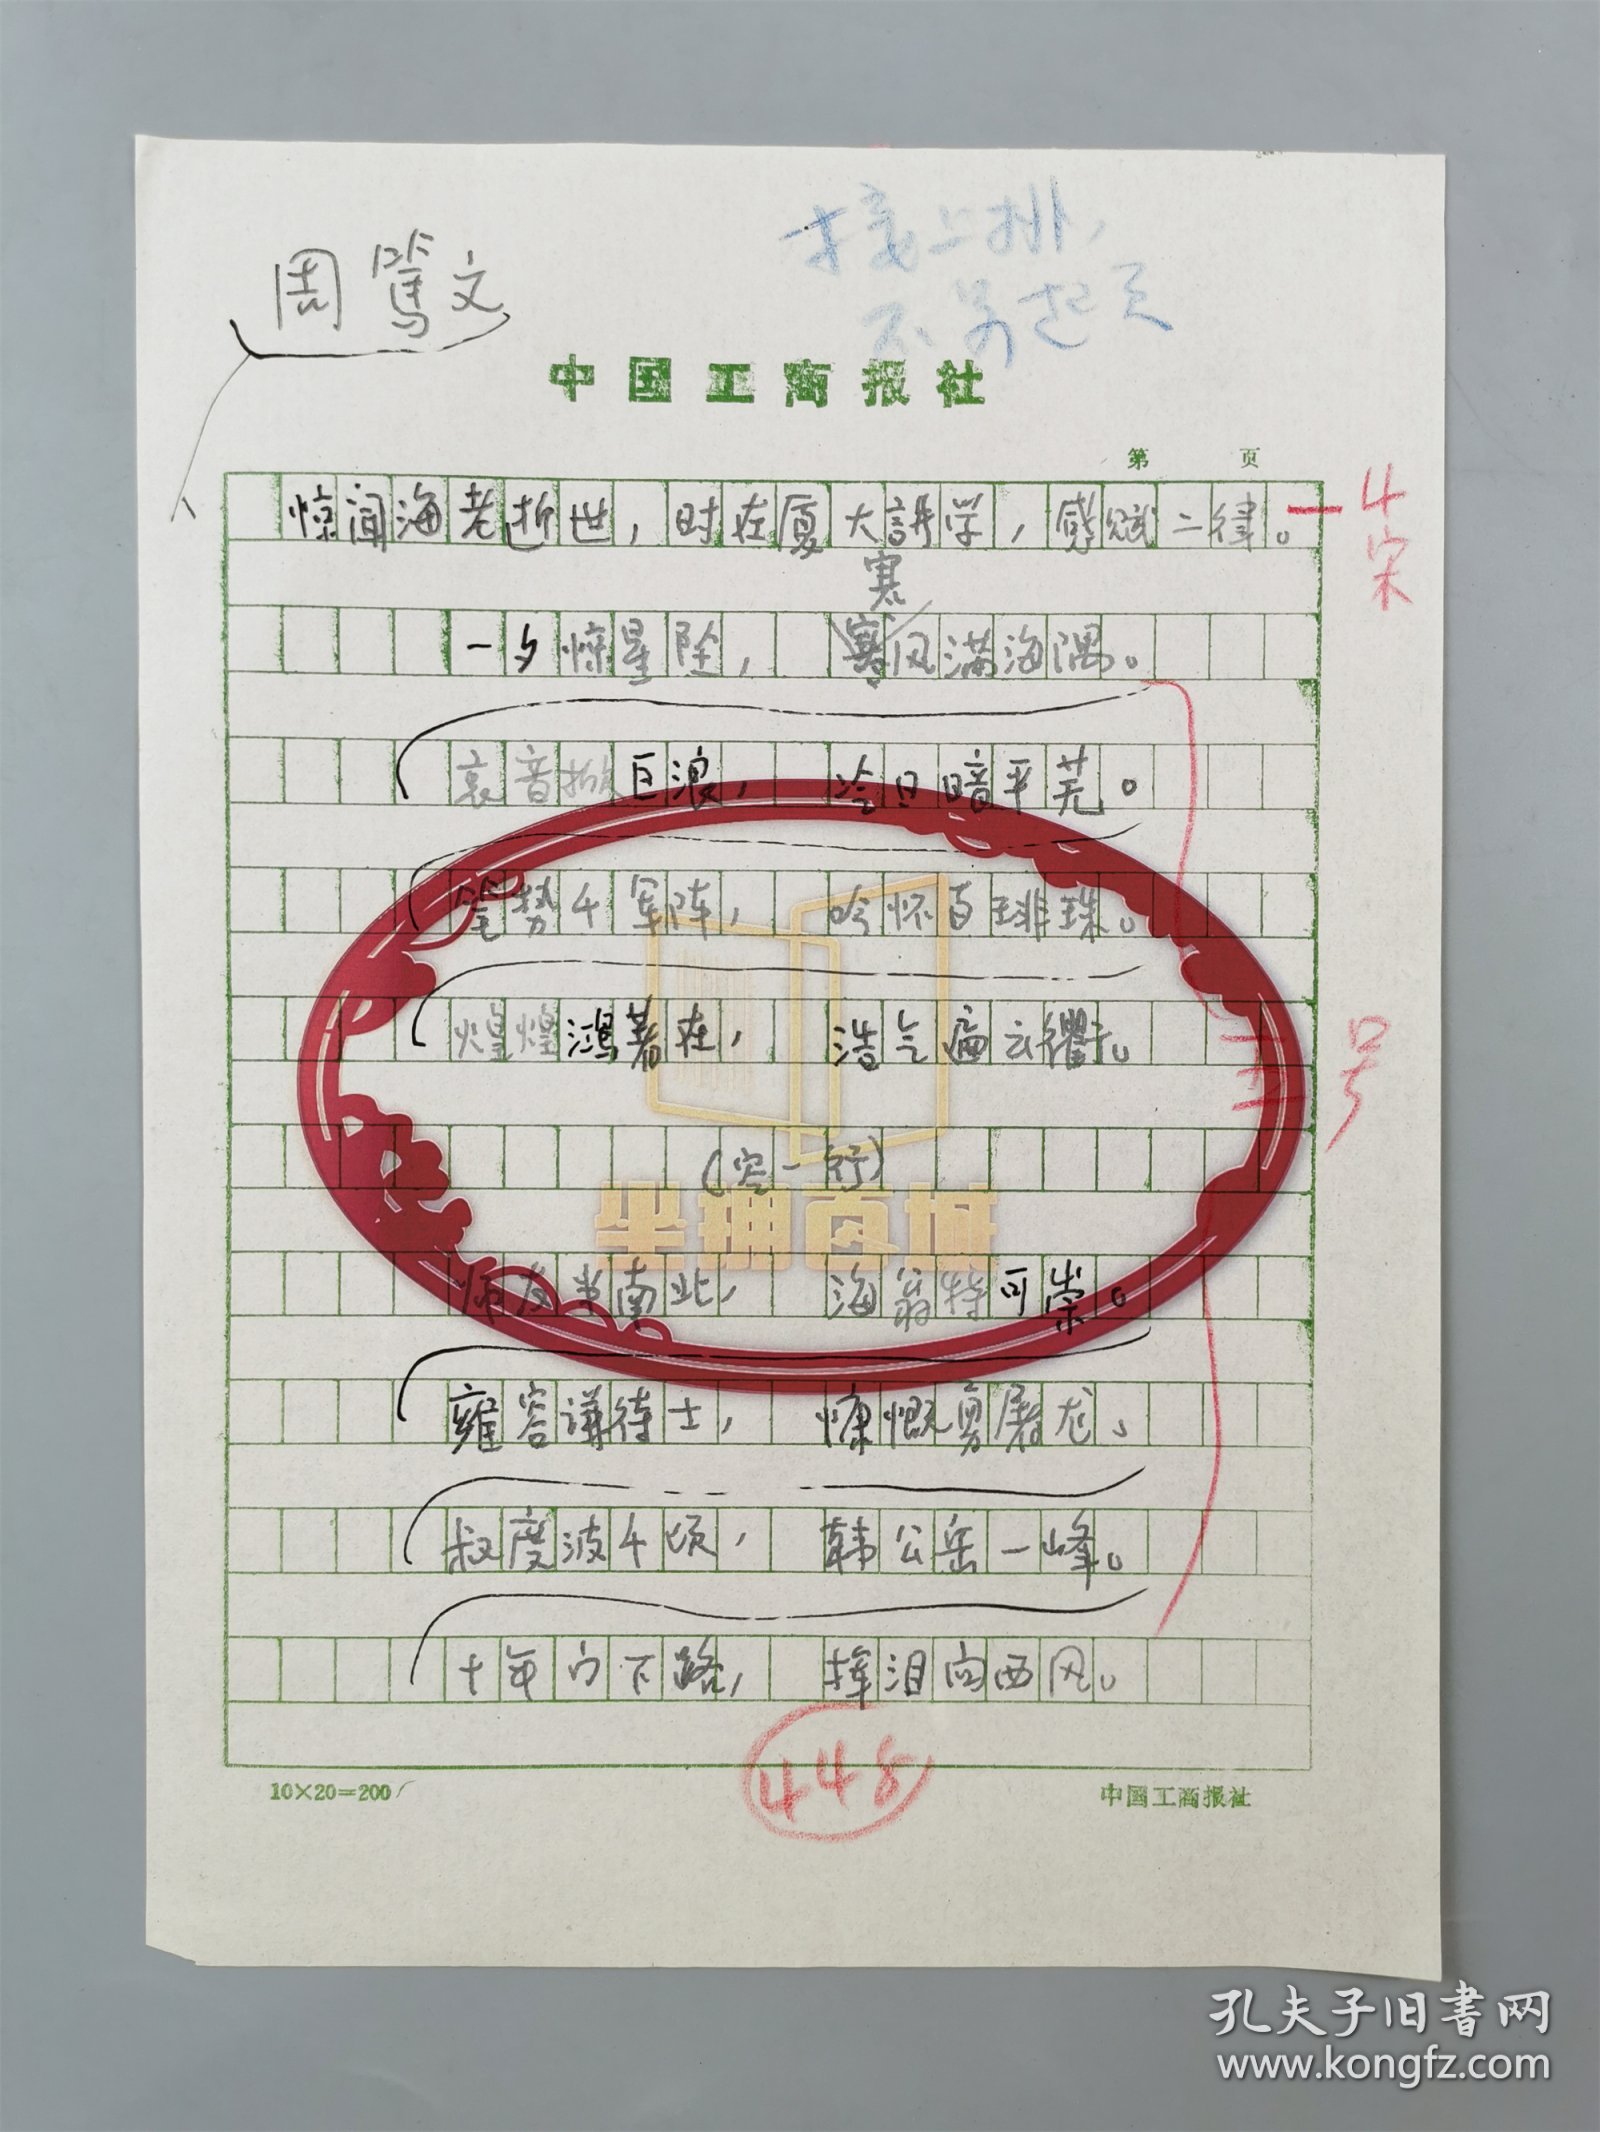 接上排，
不另起页
周篤文
中国工商报社
第 页
惊闻海老逝世，时在厦大講学，感赋二律。
4宋
寒
一夕惊星陨，寒风满海隅。
哀音掀巨浪，冷日暗平芜。
笔势千军阵，吟怀百琲珠。
煌煌鸿著在，浩气遍云衢。
号
（空一行）
坐拥百城
师友半南北，海翁特可崇。
雍容谦待士，慷慨勇屠龙、
叔度波千顷，韩公岳一峰。
十年门下路，挥泪向西风。
448
10×20=200
中国工商报社
孔夫子旧书网
www.kongfz.com